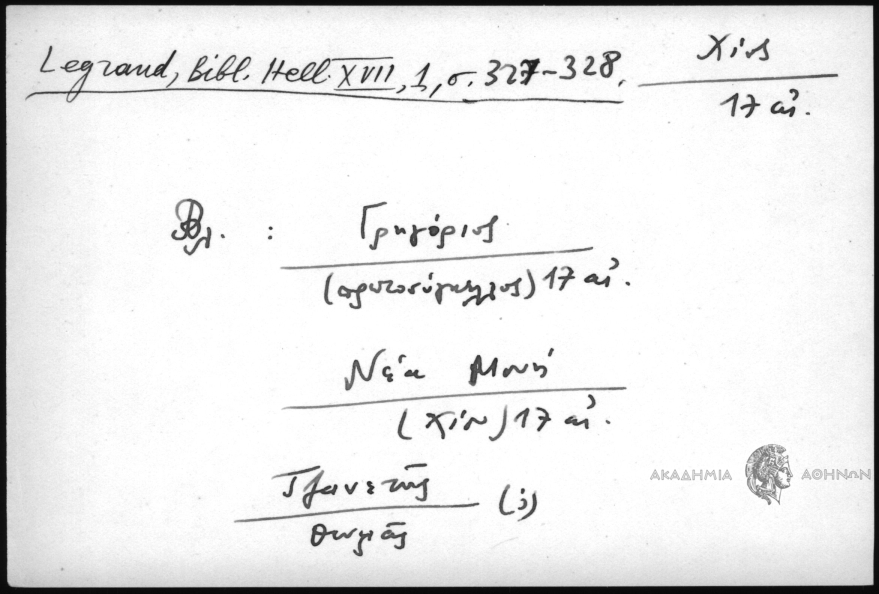 Legrand, Bibl. Hell. XVII, 1, σ. 327-328.
Χίος
17 αἰ.
Βλ. : Γρηγόριος
(πρωτοσύγκελλος) 17 αἰ.
Νέα Μονή
(Χίου) 17 αἰ.
Τζανετῆς (ὁ)
Θωμᾶς
ΑΚΑΔΗΜΙΑ ΑΘΗΝΩΝ